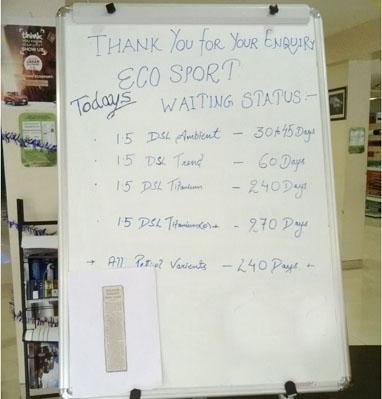 THANK YOU FOR YOUR ENQUIRY
ECO SPORT
Todays WAITING STATUS:-
1.5 DSL Ambient - 30 to 45 Days
1.5 DSL Trend - 60 Days
1.5 DSL Titanium - 240 Days
1.5 DSL Titanium - 270 Days
→ All Petrol Varients - 240 Days ←
think